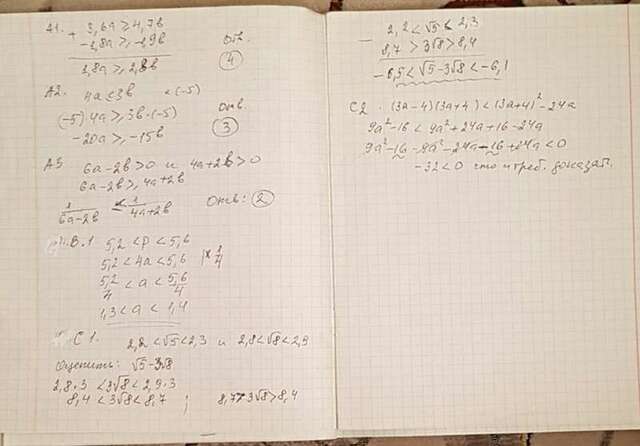 А1. + 3,6a ≥ 4,7b
-1,8a ≥ -1,9b
1,8a ≥ 2,8b
Отв. 4
А2. 4a ≤ 3b ×(-5)
(-5)·4a ≥ 3b·(-5)
-20a ≥ -15b
Отв. 3
А3. 6a-2b>0 и 4a+2b>0
6a-2b ≥ 4a+2b
1/(6a-2b) ≤ 1/(4a+2b)
Отв: 2
В.1. 5,2 < p < 5,6
5,2 < 4a < 5,6 |×1/4
5,2/4 < a < 5,6/4
1,3 < a < 1,4
С1. 2,2 < √5 < 2,3 и 2,8 < √8 < 2,9
Оценить: √5-3√8
2,8·3 < 3√8 < 2,9·3
8,4 < 3√8 < 8,7 ; 8,7 > 3√8 > 8,4
- 2,2 < √5 < 2,3
8,7 > 3√8 > 8,4
-6,5 < √5-3√8 < -6,1
С2. (3a-4)(3a+4) < (3a+4)²-24a
9a²-16 < 9a²+24a+16-24a
9a²-16-9a²-24a-16+24a<0
-32<0 что и треб. доказат.